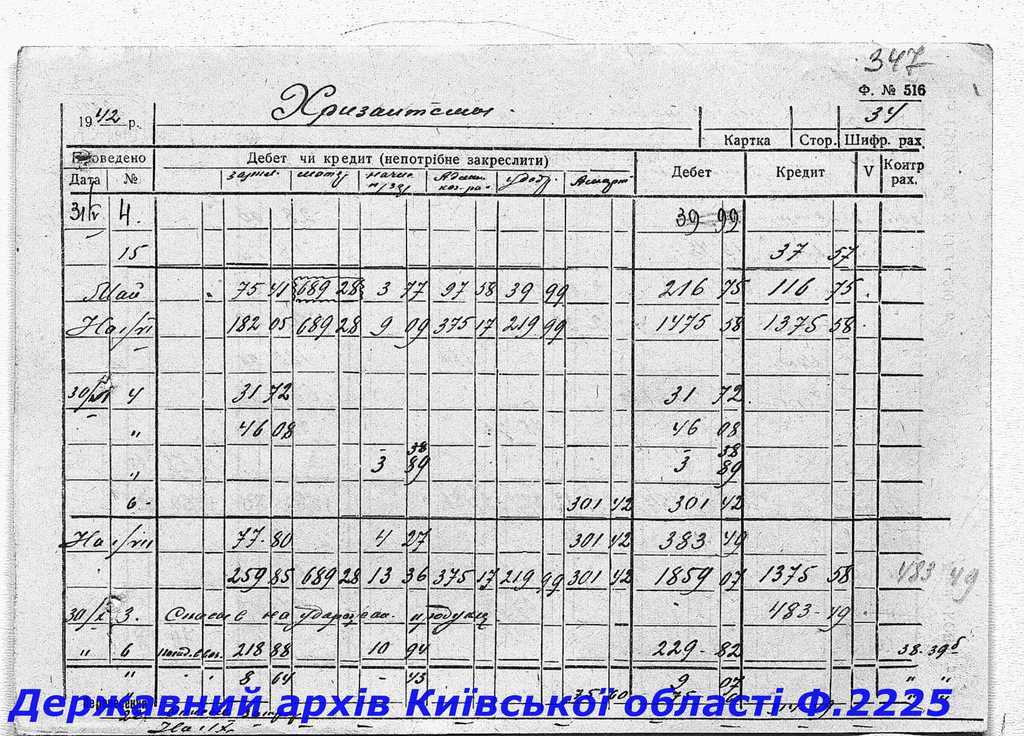 347
Ф. № 516
1942 р. Хризантеми 34
Картка Стор. Шифр. рах.
Проведено Дебет чи кредит (непотрібне закреслити) Дебет Кредит V Контр рах.
Дата №
31/V 4. 39 99
15 37 57
Май 75 41 689 28 3 77 97 58 39 99 216 75 116 75
На 1/VI 182 05 689 28 9 09 375 17 219 99 1475 58 1375 58
30/VI 4 31 72 31 72
" 46 08 46 08
" 3 89 3 89
6 301 42 301 42
На 1/VII 77 80 4 27 301 42 383 49
259 85 689 28 13 36 375 17 219 99 301 42 1859 07 1375 58 483 49
30/X 3. на 483 49
" 6 218 88 10 94 229 82 38-39б
" 8 64 - 43 9 07 " "
Державний архів Київської області Ф.2225